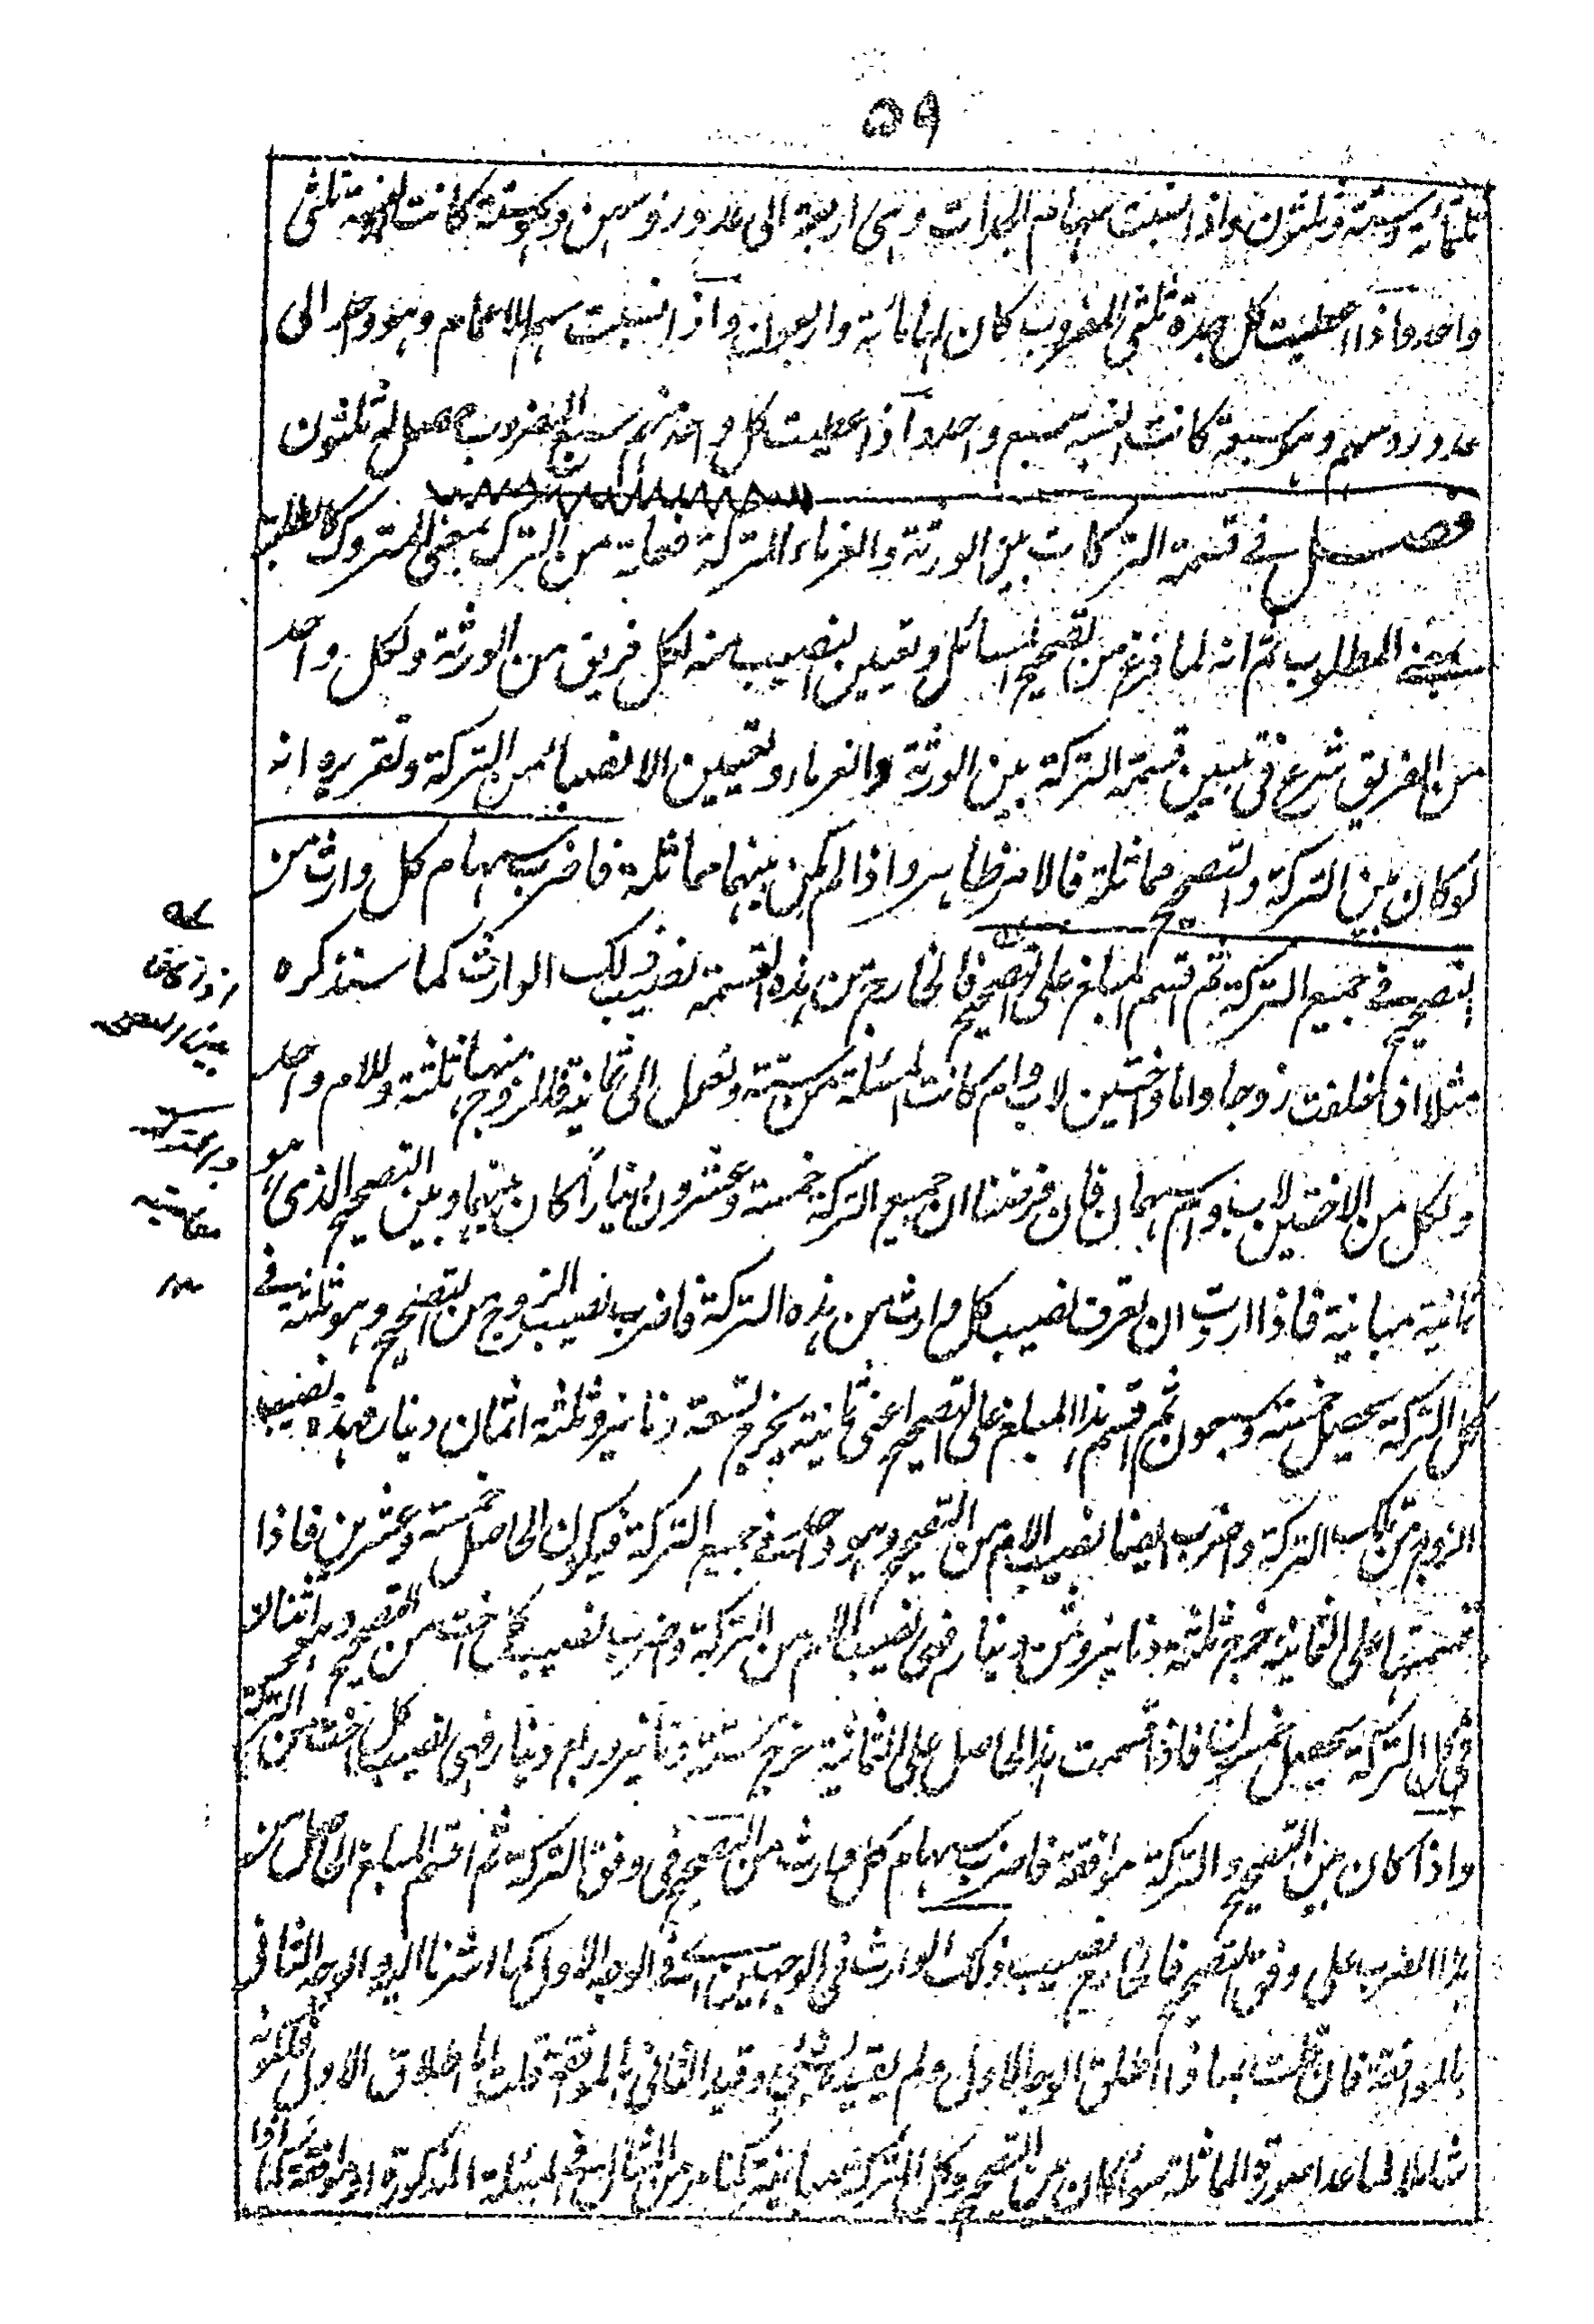 ٥٩
ثلثمائة وستة وثلثون واذا نسبت سهام الجدات وهى اربعة الى عدد رؤسهن وهو ستة كانت النسبة ثلثى
واحد واذا اعطيت كل جدة ثلثى المضروب كان لها مائة واربعون واذا نسبت سهم الاعمام وهو واحد الى
عدد رؤسهم وهو سبعة كانت النسبة سبع واحد واذا اعطيت كل واحد منهم سبع المضروب حصل له ثلثون
فصل في قسمة التركات بين الورثة والغرماء التركة فعلة من الترك بمعنى المتروك كالطلبة
بمعنى المطلوب ثم انه لما فرغ من تصحيح المسائل وتعيين النصيب منه لكل فريق من الورثة ولكل واحد
من الفريق شرع في تبيين قسمة التركة بين الورثة والغرماء وتعيين الانصباء من التركة وتقريره انه
لو كان بين التركة والتصحيح مماثلة فالامر ظاهر واذا لم يكن بينهما مماثلة فاضرب سهام كل وارث من
التصحيح في جميع التركة ثم اقسم المبلغ على التصحيح فالخارج من هذه القسمة نصيب ذلك الوارث كما ستذكره
مثلا اذا خلفت زوجا واما واختين لاب وام كانت المسئلة من ستة وتعول الى ثمانية فللزوج منها ثلثة وللام واحد
ولكل من الاختين لاب وام سهمان فان فرضنا ان جميع التركة خمسة وعشرون دينارا كان بينهما وبين التصحيح الذي هو
ثمانية مباينة فاذا اردت ان تعرف نصيب كل وارث من هذه التركة فاضرب نصيب الزوج من التصحيح وهو ثلثة في
كل التركة يحصل خمسة وسبعون ثم اقسم هذا المبلغ على التصحيح اعنى ثمانية يخرج تسعة دنانير وثلثة اثمان دينار فهذه نصيب
الزوج من تلك التركة واضرب ايضا نصيب الام من التصحيح وهو واحد في جميع التركة فيكون الحاصل خمسة وعشرين فاذا
قسمتها على الثمانية خرج ثلثة دنانير وثمن دينار فهى نصيب الام من التركة واضرب نصيب كل اخت من التصحيح وهو اثنان
في كل التركة يحصل خمسون فاذا قسمت هذا الحاصل على الثمانية خرج ستة دنانير وربع دينار فهى نصيب كل اخت من التركة
واذا كان بين التصحيح والتركة موافقة فاضرب سهام كل وارث من التصحيح في وفق التركة ثم اقسم المبلغ الحاصل من
هذا الضرب على وفق التصحيح فالخارج نصيب ذلك الوارث في الوجهين اى في الوجه الاول كما اشرنا اليه والوجه الثانى
بالموافقة فان قلت لماذا اطلق الوجه الاول ولم يقيده بشئ وقيد الثانى بالموافقة قلت اما اطلاق الاول فلكونه
شاملا لما عدا صورة المماثلة سواء كان بين التصحيح وكل التركة مباينة كما مر من المثال في المسئلة المذكورة او موافقة كما اذا